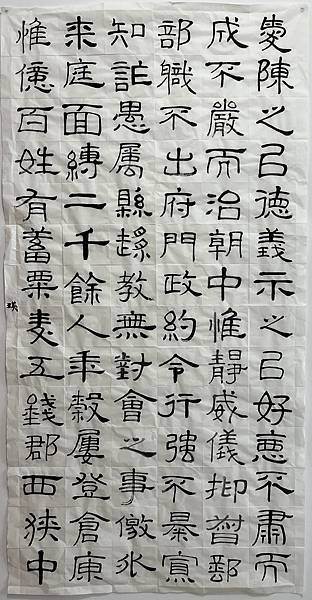 爰陳之以德義示之以好惡不肅而
成不嚴而治朝中惟靜威儀抑督郵
部職不出府門政約令行強不暴寡
知詐愚屬縣趍教無對會之事徼外
来庭面縛二千餘人年穀屢登倉庾
惟億百姓有蓄粟麦五錢郡西狹中